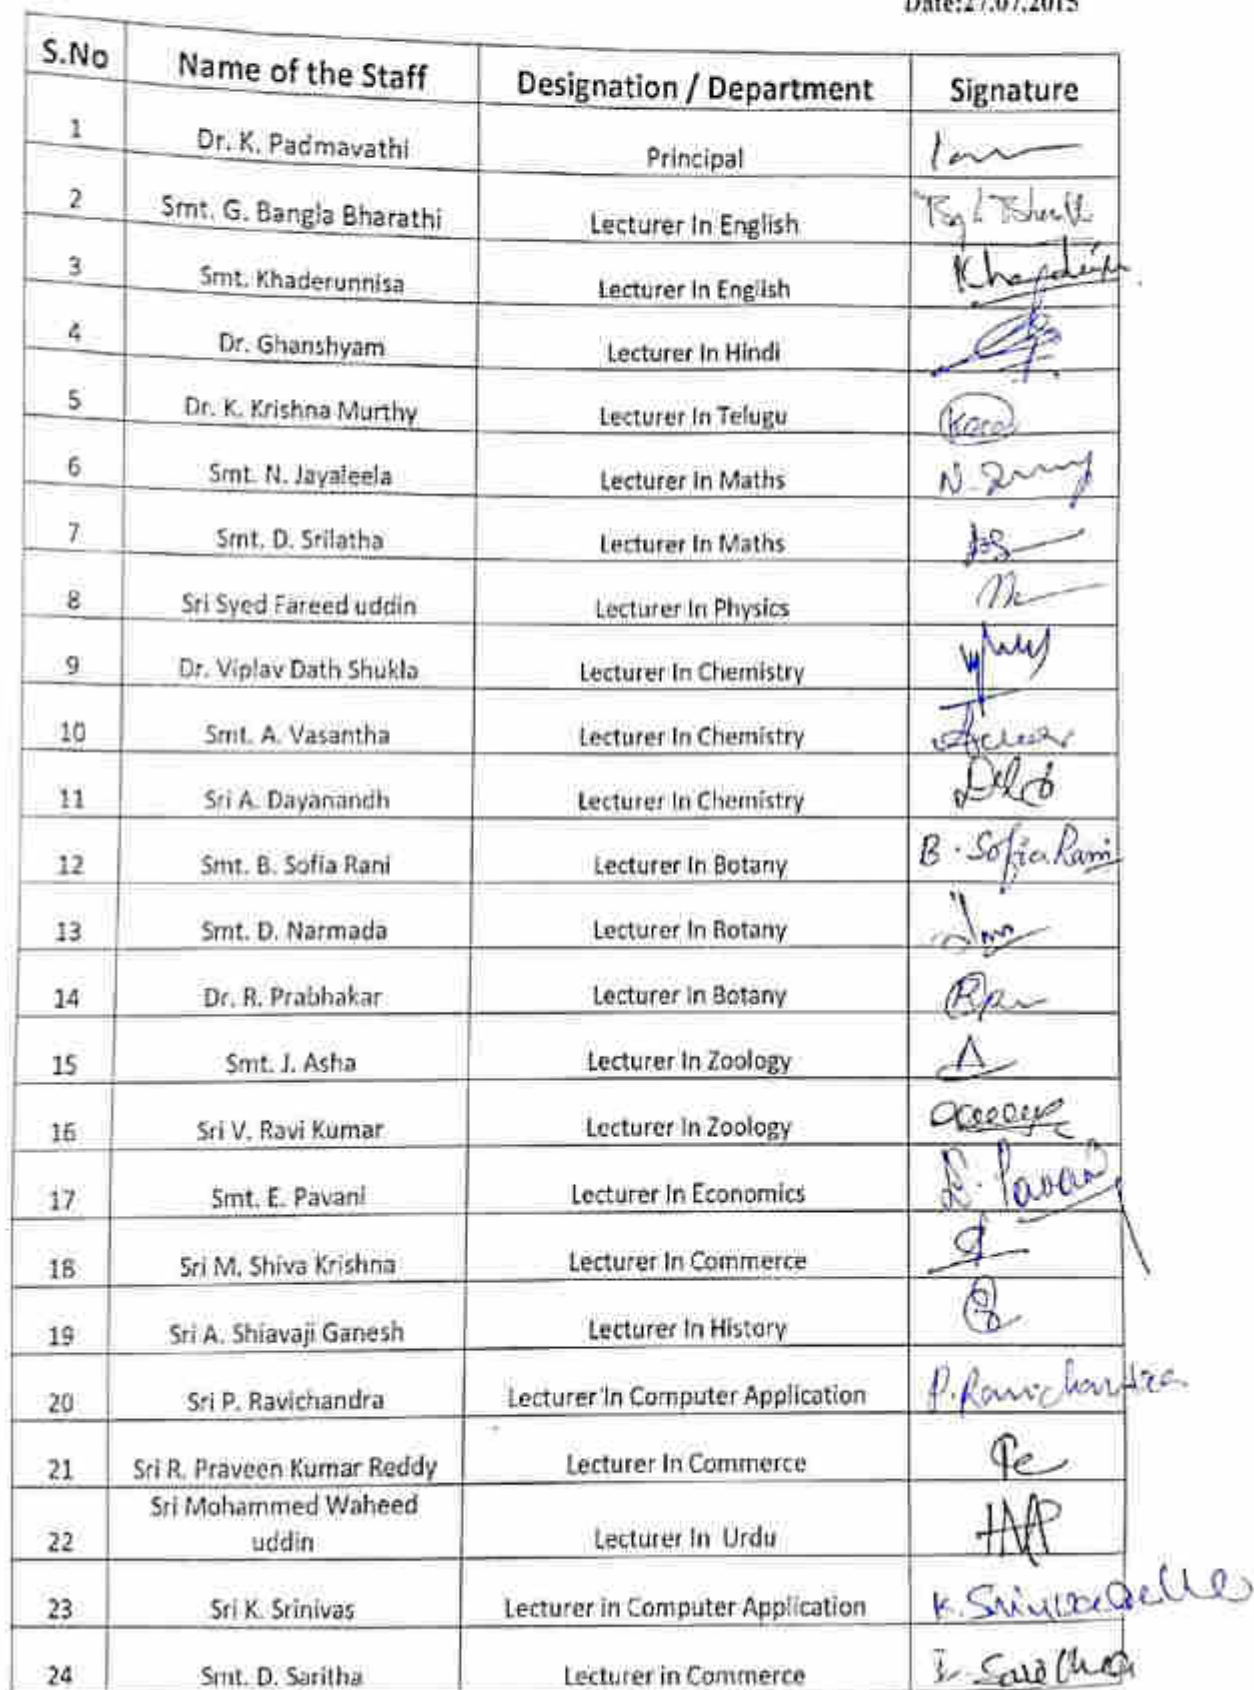 Date:27.07.2015
S.No Name of the Staff Designation / Department Signature
1 Dr. K. Padmavathi Principal
2 Smt. G. Bangla Bharathi Lecturer In English
3 Smt. Khaderunnisa Lecturer In English
4 Dr. Ghanshyam Lecturer In Hindi
5 Dr. K. Krishna Murthy Lecturer In Telugu
6 Smt. N. Jayaleela Lecturer In Maths
7 Smt. D. Srilatha Lecturer In Maths
8 Sri Syed Fareed uddin Lecturer In Physics
9 Dr. Viplav Dath Shukla Lecturer In Chemistry
10 Smt. A. Vasantha Lecturer In Chemistry
11 Sri A. Dayanandh Lecturer In Chemistry
12 Smt. B. Sofia Rani Lecturer In Botany B. Sofia Rani
13 Smt. D. Narmada Lecturer In Botany
14 Dr. R. Prabhakar Lecturer In Botany
15 Smt. J. Asha Lecturer In Zoology
16 Sri V. Ravi Kumar Lecturer In Zoology
17 Smt. E. Pavani Lecturer In Economics E. Pavani
18 Sri M. Shiva Krishna Lecturer In Commerce
19 Sri A. Shiavaji Ganesh Lecturer In History
20 Sri P. Ravichandra Lecturer In Computer Application P. Ravichandra
21 Sri R. Praveen Kumar Reddy Lecturer In Commerce
Sri Mohammed Waheed
22 uddin Lecturer In Urdu
23 Sri K. Srinivas Lecturer in Computer Application
24 Smt. D. Saritha Lecturer in Commerce